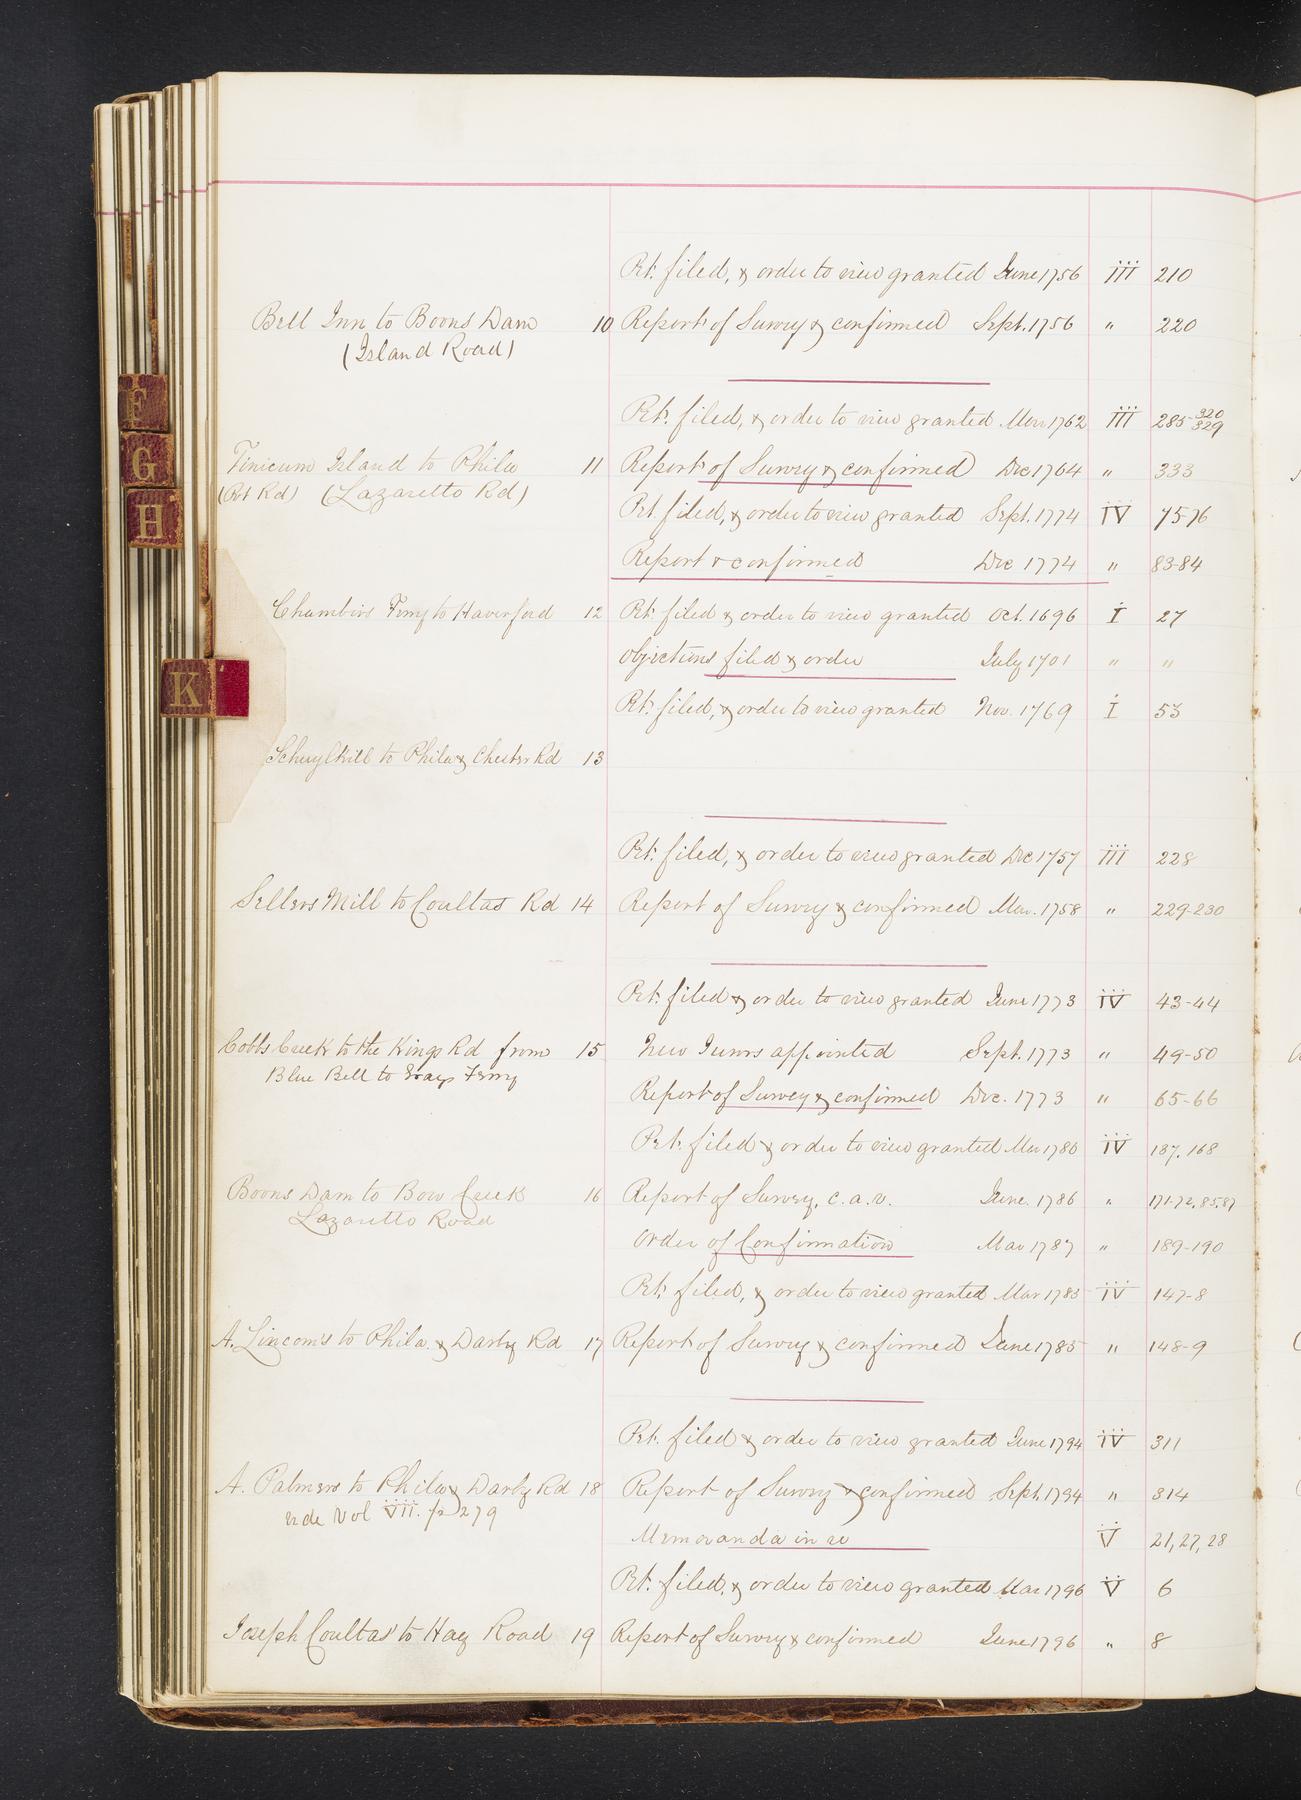 Pet. filed, & order to view granted June 1756 III 210
Bell Inn to Boons Dam 10 Report of Survey & confirmed Sept. 1756 " 220
(Island Road)
Pet. filed, & order to view granted Mar 1762 III 285-320 329
Tinicum Island to Phila 11 Report of Survey & confirmed Dec 1764 " 333
(Pet Rd) (Lazaretto Rd)
Pet. filed, & order to view granted Sept. 1774 IV 75-76
Report & confirmed Dec 1774 " 83-84
Chambers Ferry to Haverford 12 Pet. filed & order to view granted Oct. 1696 I 27
Objections filed & order July 1701 " "
Pet. filed, & order to view granted Nov. 1769 I 53
Schuylkill to Phila & Chester Rd 13
Pet. filed, & order to view granted Dec 1757 III 228
Sellers Mill to Coultas Rd 14 Report of Survey & confirmed Mar. 1758 " 229-230
Pet. filed & order to view granted June 1773 IV 43-44
Cobbs Creek to the Kings Rd from 15 New Jurors appointed Sept. 1773 " 49-50
Blue Bell to Grays Ferry
Report of Survey & confirmed Dec. 1773 " 65-66
Pet. filed & order to view granted Mar 1786 IV 167.168
Boons Dam to Bow Creek 16 Report of Survey, c.a.v. June. 1786 " 171-72, 85.87
Lazaretto Road
Order of Confirmation Mar 1787 " 189-190
Pet. filed, & order to view granted Mar 1785 IV 147-8
A. Lincoms to Phila. & Darby Rd 17 Report of Survey & confirmed June 1785 " 148-9
Pet. filed & order to view granted June 1794 IV 311
A. Palmers to Phila & Darby Rd 18 Report of Survey & confirmed Sept. 1794 " 314
vide Vol VIII. p 279
Memoranda in re V 21, 27, 28
Pet. filed, & order to view granted Mar 1796 V 6
Joseph Coultas' to Hay Road 19 Report of Survey & confirmed June 1796 " 8
F
G
H
K